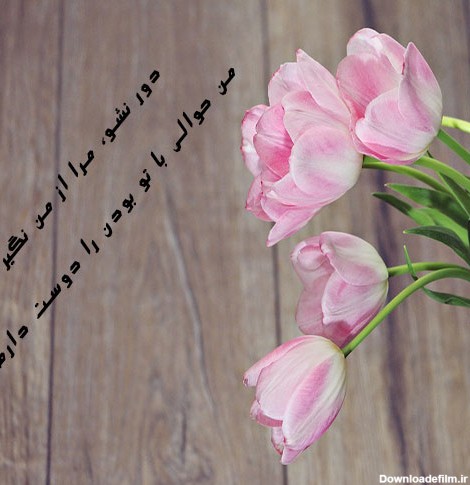 دور نشو، مرا از من نگیر
من حوالی با تو بودن را دوست دارم
Downloadefilm.ir